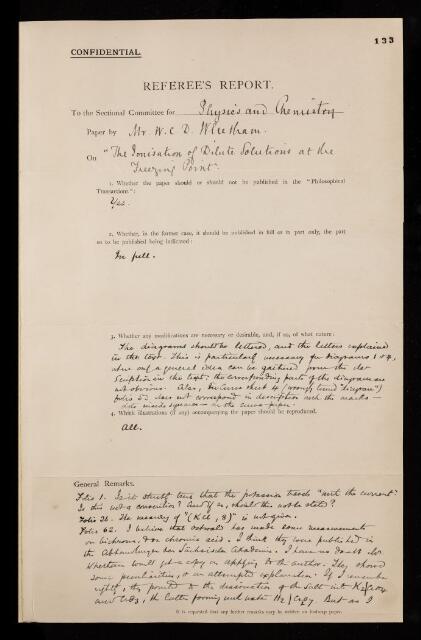 133
CONFIDENTIAL.
REFEREE'S REPORT.
To the Sectional Committee for Physics and Chemistry
Paper by Mr. W. C. D. Whetham.
On "The Ionisation of Dilute Solutions at the
Freezing Point".
1. Whether the paper should or should not be published in the "Philosophical
Transactions":
Yes.
2. Whether, in the former case, it should be published in full or in part only, the part
so to be published being indicated:
In full.
3. Whether any modifications are necessary or desirable, and, if so, of what nature:
The diagrams should be lettered, and the letters explained
in the text. This is particularly necessary for Diagrams 1 & 4,
where only a general idea can be gathered from the de-
scription in the text: the corresponding parts of the diagram are
not obvious. Also, in curve sheet 4 (wrongly termed "diagram")
folio 50 does not correspond in description with the marks —
dots inside squares — in the curve paper.
4. Which illustrations (if any) accompanying the paper should be reproduced.
All.
General Remarks.
Folio 1. Is it strictly true that the potassium travels "with the current"?
Is this not a convention? And if so, should this not be stated?
Folio 26. The meaning of "(KCl, 8)" is not given.
Folio 62. I believe that Ostwald has made some measurements
on bichrome. & on chromic acid. I think they were published in
the Abhandlungen der Sächsische Akademie. I have no doubt Mr.
Whetham would get a copy on applying to the author. They showed
some peculiarities, & an attempted explanation. If I remember
rightly, they pointed to the dissociation of the salt into K2CrO4
and CrO3, the latter forming with water H2CrO4. But as I
It is requested that any further remarks may be written on foolscap paper.